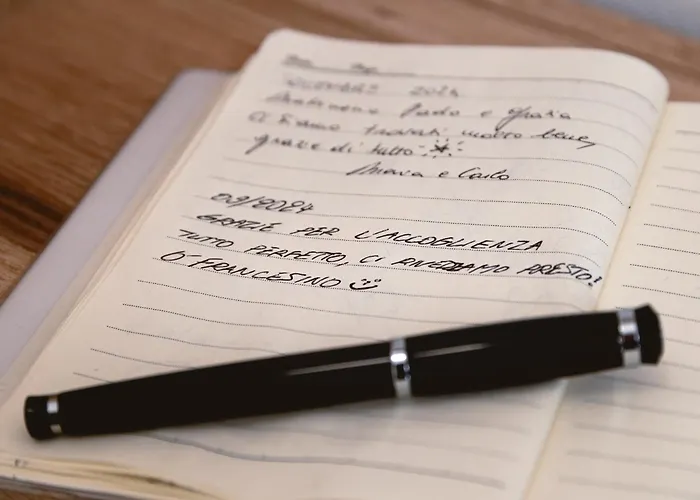 2024
Paolo e Grazia
ci siamo trovati molto bene,
grazie di tutto
Maria e Carlo
03/2024
GRAZIE PER L'ACCOGLIENZA
TUTTO PERFETTO, CI RIVEDIAMO PRESTO!
O' FRANCESINO